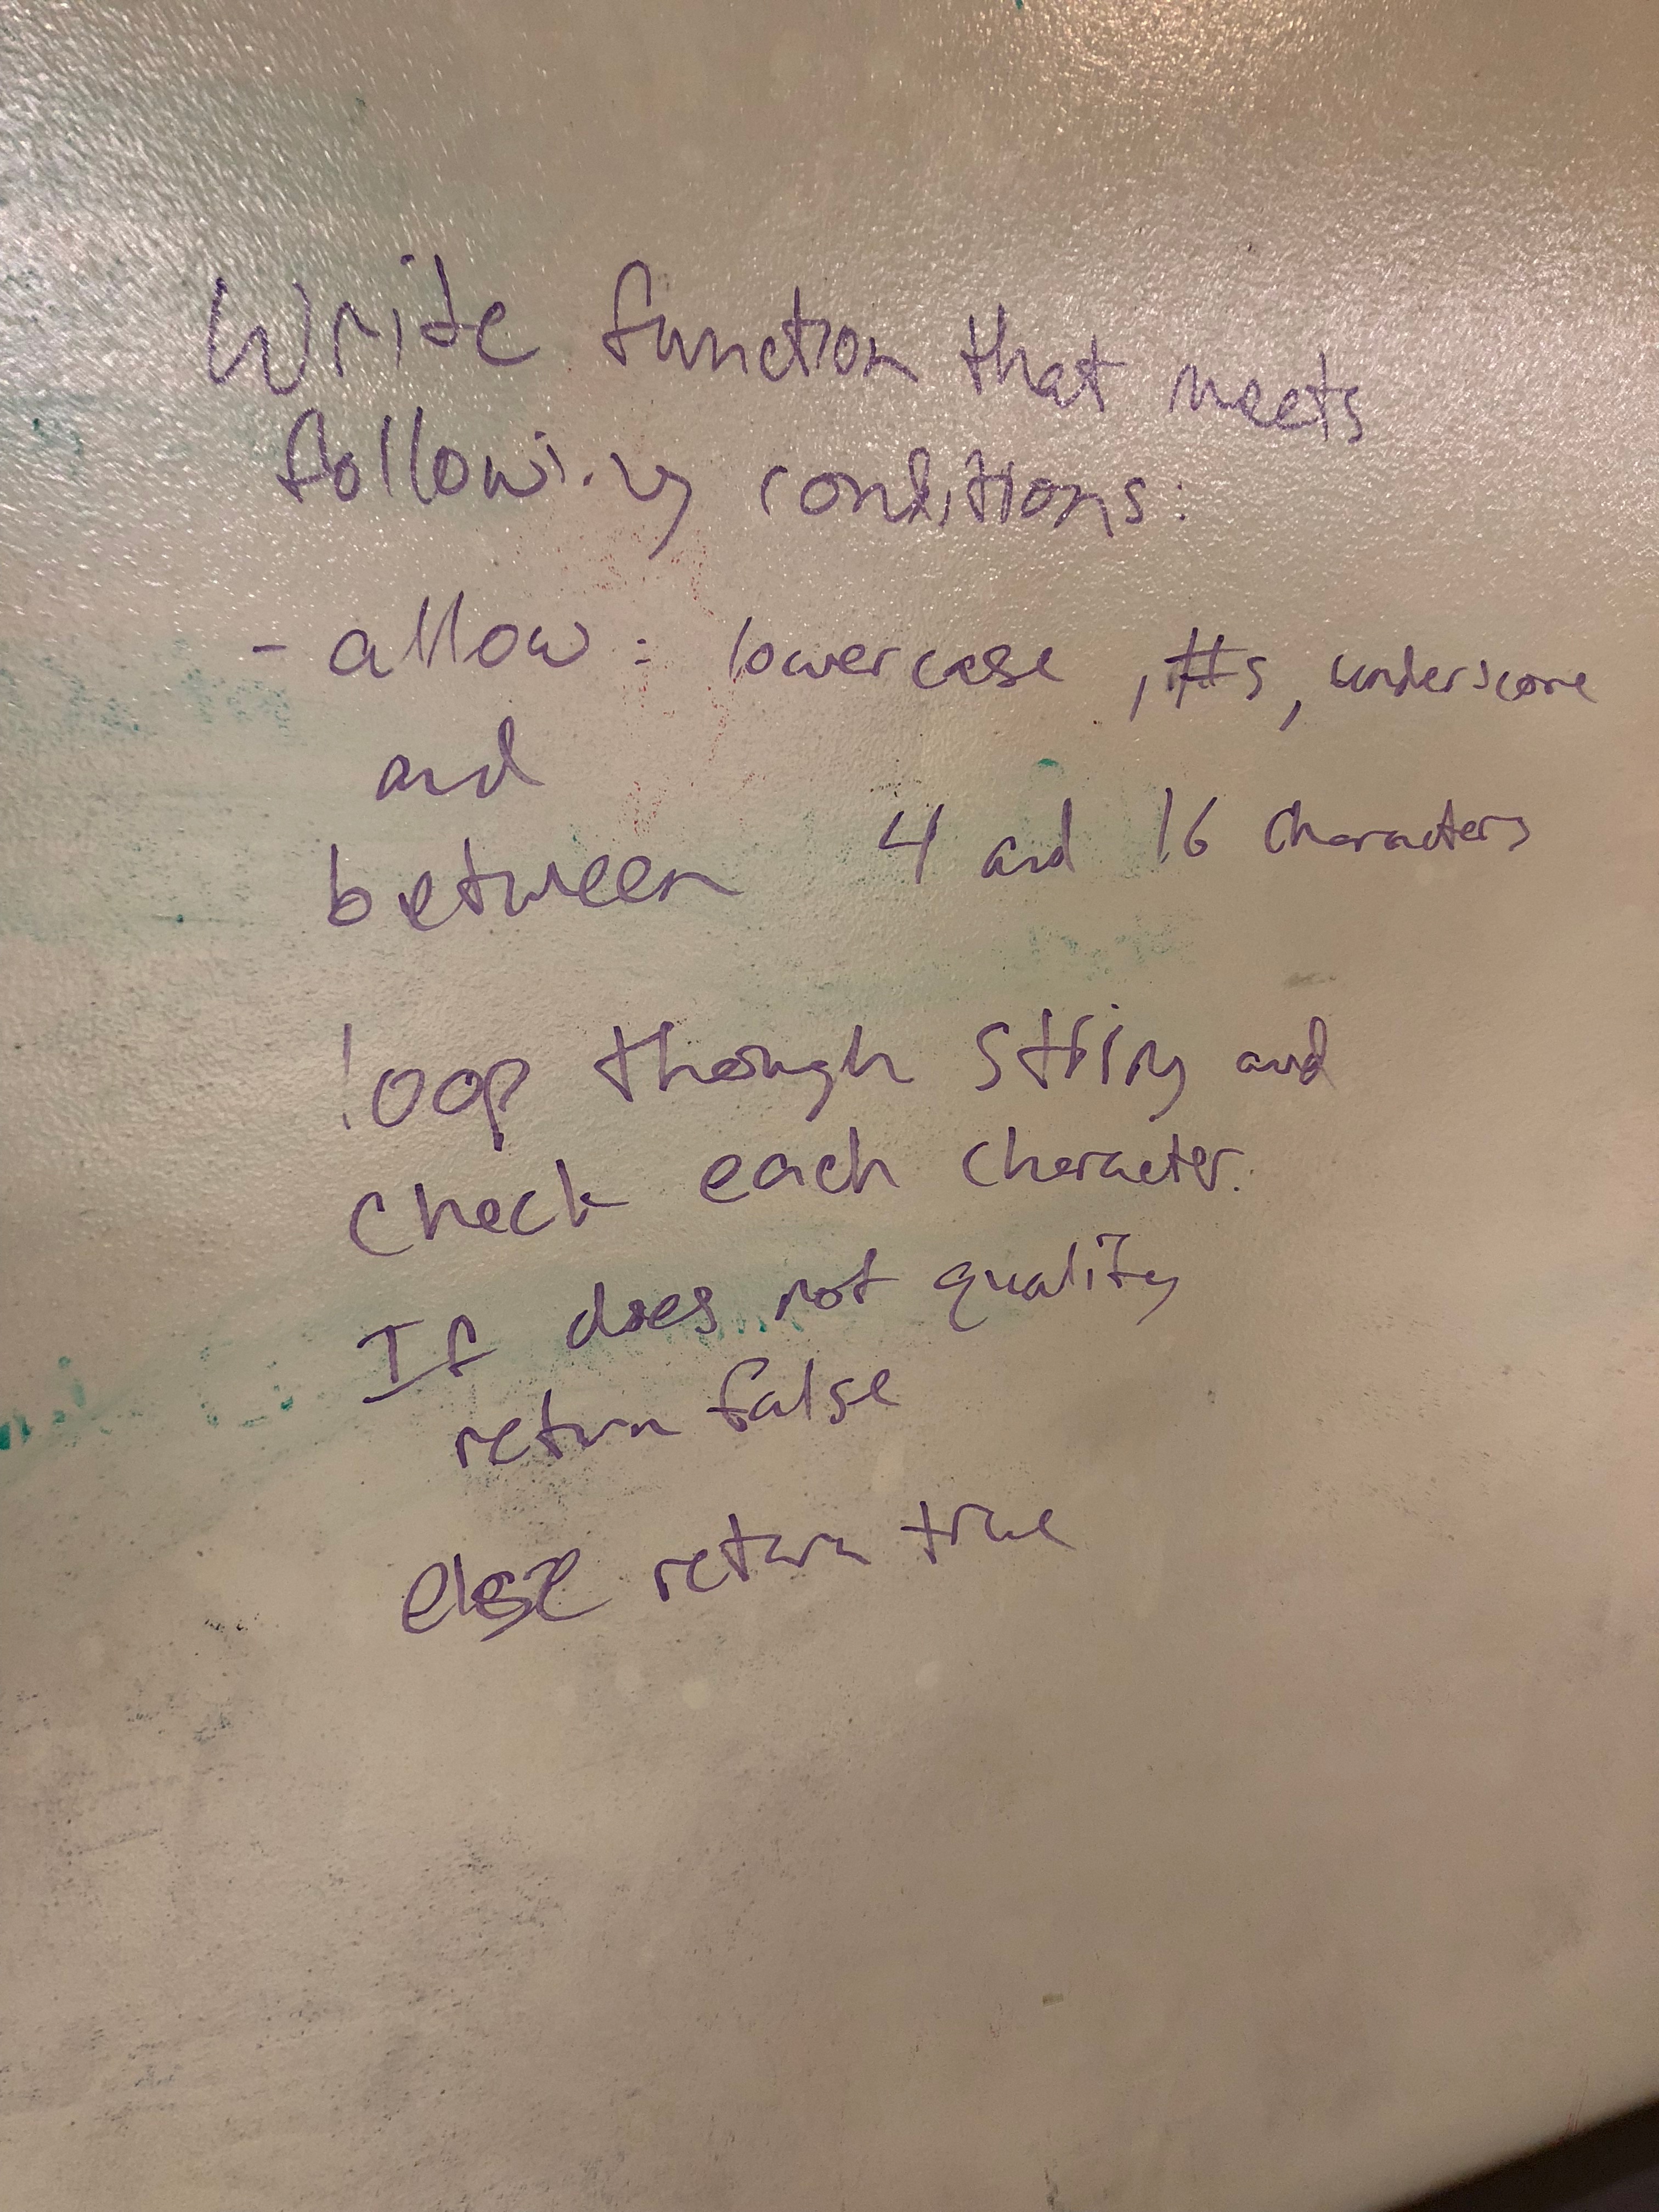 Write function that meets
following conditions:
- allow: lowercase, #s, underscore
and
between 4 and 16 characters
loop though string and
check each character.
If does not qualify
return false
else return true